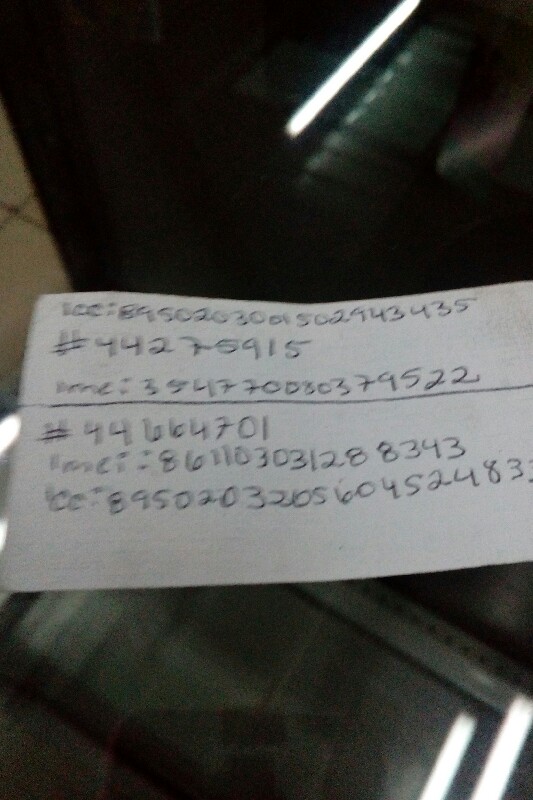 icc:8950203001502943435
#44275915
imei:354770080379522
#44664701
imei:861103031288343
icc:895020320560452483